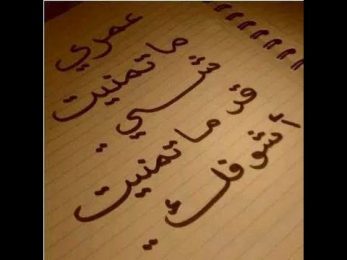 عمري
ما تمنيت
شي ..
قد ما تمنيت
أشوفك ..